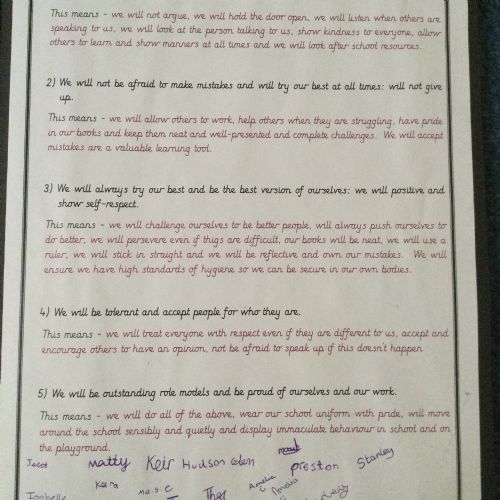 This means - we will not argue, we will hold the door open, we will listen when others are
speaking to us, we will look at the person talking to us, show kindness to everyone, allow
others to learn and show manners at all times and we will look after school resources.
2) We will not be afraid to make mistakes and will try our best at all times: will not give
up.
This means - we will allow others to work, help others when they are struggling, have pride
in our books and keep them neat and well-presented and complete challenges. We will accept
mistakes are a valuable learning tool.
3) We will always try our best and be the best version of ourselves: we will positive and
show self-respect.
This means - we will challenge ourselves to be better people, will always push ourselves to
do better, we will persevere even if thigs are difficult, our books will be neat, we will use a
ruler, we will stick in straight and we will be reflective and own our mistakes. We will
ensure we have high standards of hygiene so we can be secure in our own bodies.
4) We will be tolerant and accept people for who they are.
This means - we will treat everyone with respect even if they are different to us, accept and
encourage others to have an opinion, not be afraid to speak up if this doesn't happen
5) We will be outstanding role models and be proud of ourselves and our work.
This means - we will do all of the above, wear our school uniform with pride, will move
around the school sensibly and quietly and display immaculate behaviour in school and on
the playground.
Jacob Matty Keir Hudson Preston Stanley
Isabelle Keira Amelia Amaia